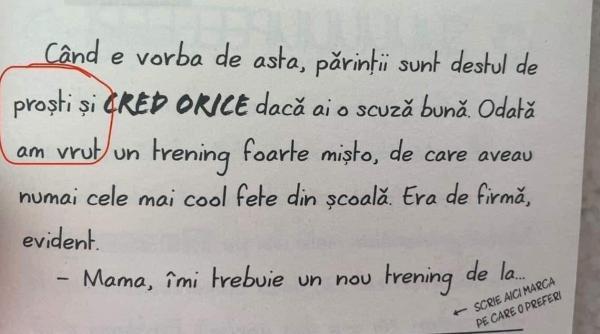 Când e vorba de asta, părinții sunt destul de
proști și CRED ORICE dacă ai o scuză bună. Odată
am vrut un trening foarte mișto, de care aveau
numai cele mai cool fete din școală. Era de firmă,
evident.
– Mama, îmi trebuie un nou trening de la...
← SCRIE AICI MARCA
PE CARE O PREFERI